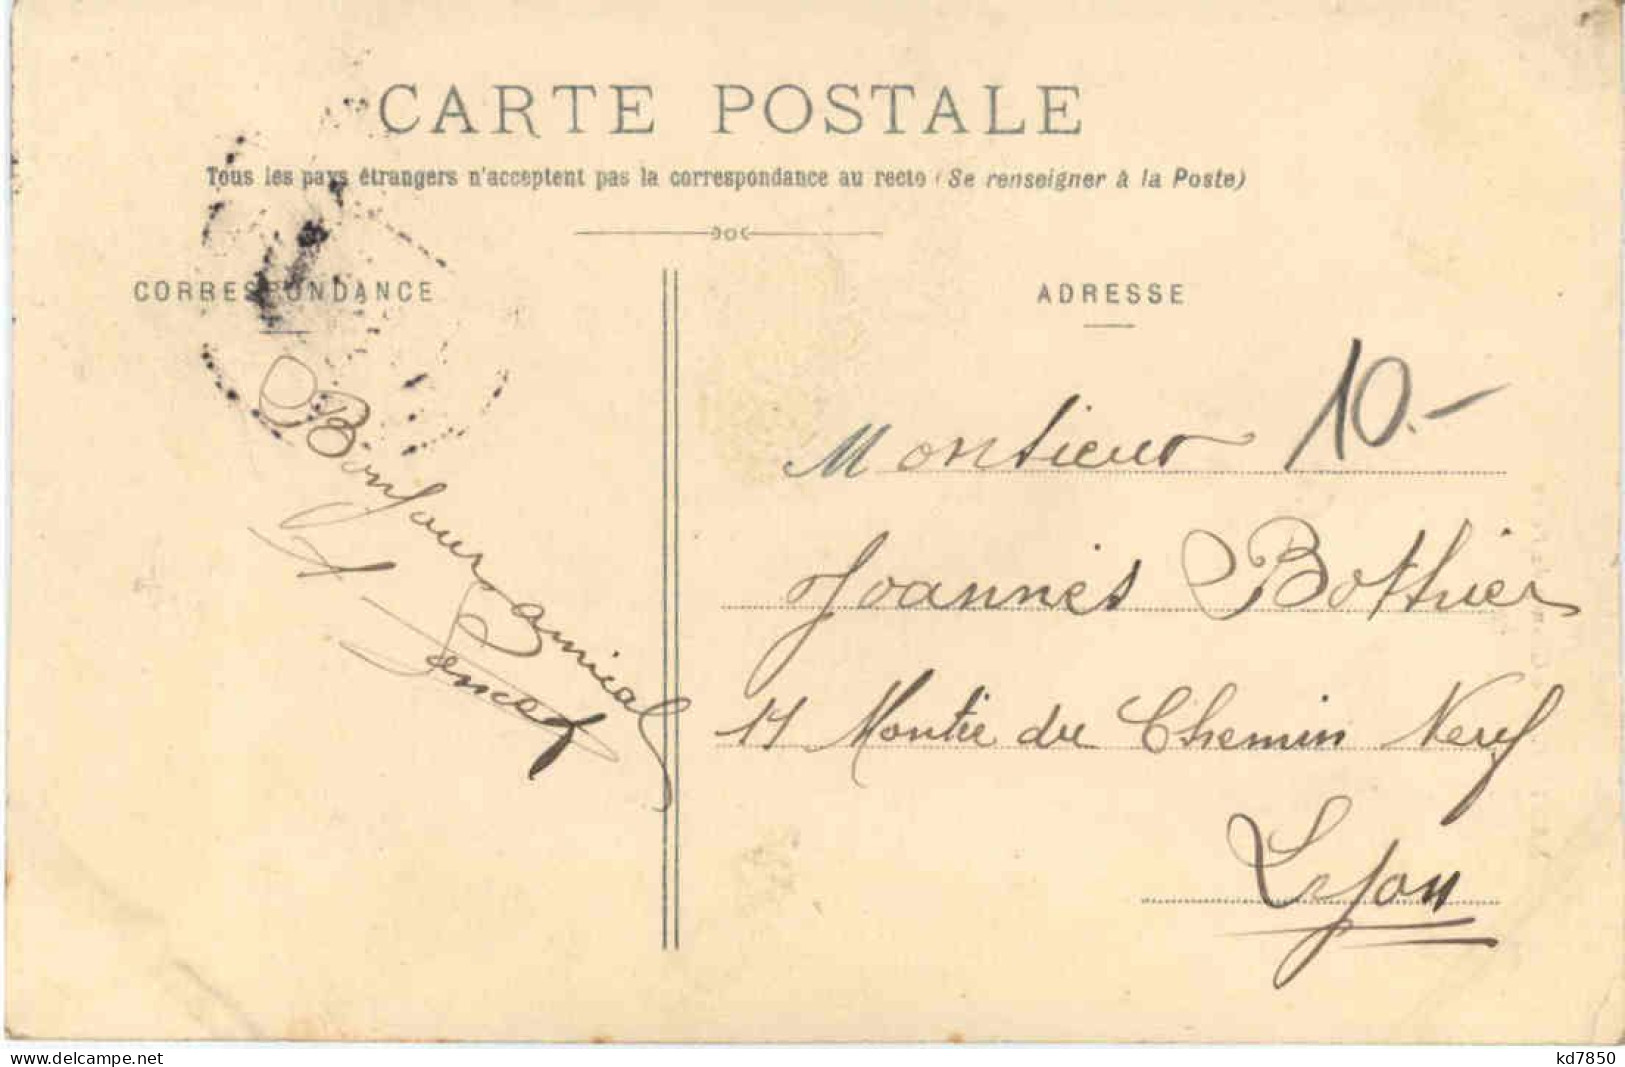 CARTE POSTALE
Tous les pays étrangers n'acceptent pas la correspondance au recto (Se renseigner à la Poste)
CORRESPONDANCE
ADRESSE
Bonjour amical
Monsieur 10.-
Joannès Bothier
11 Montée du Chemin Neuf
Lyon
www.delcampe.net
kd7850